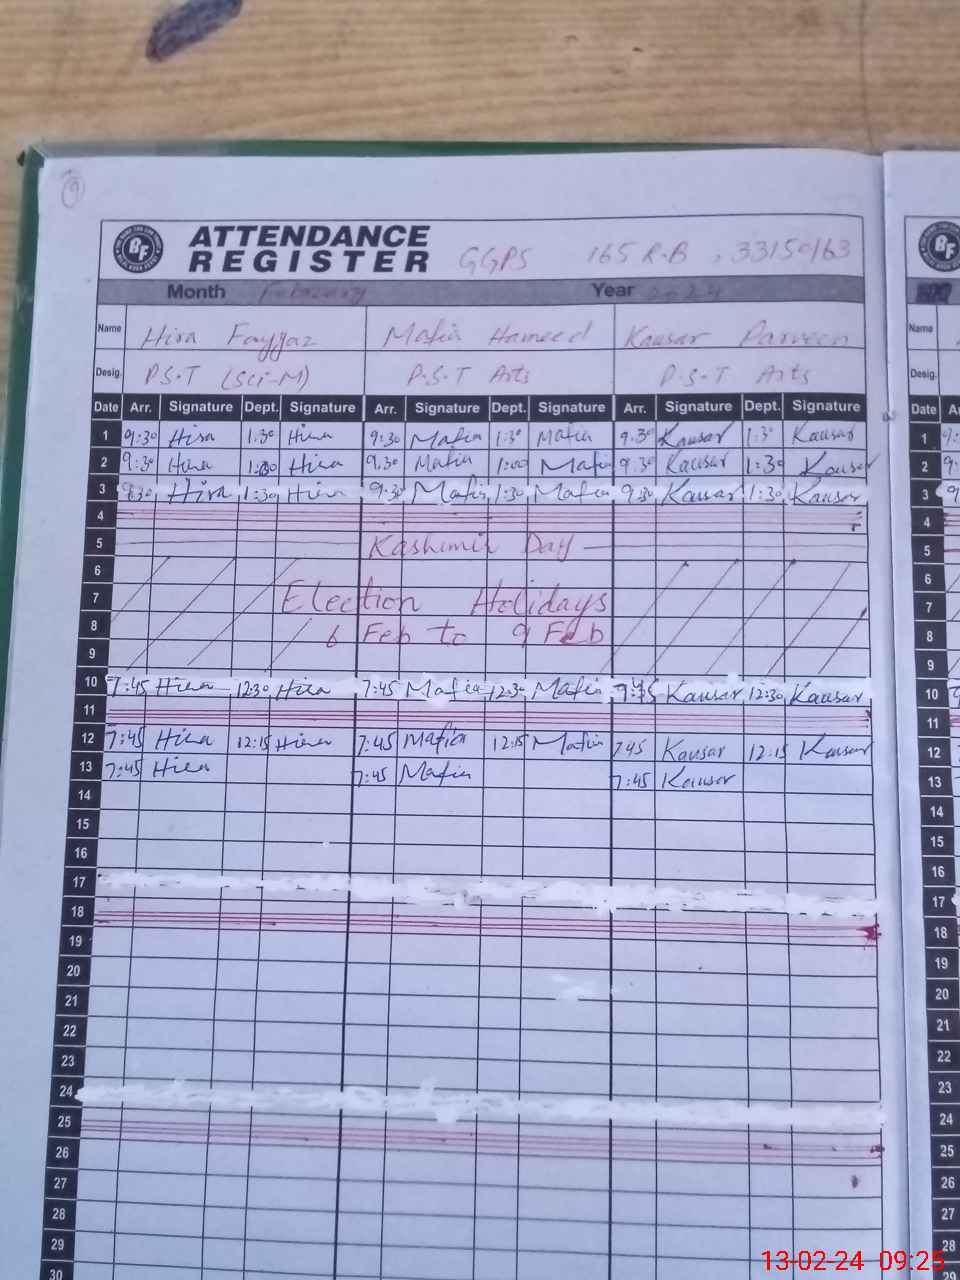 9
BF
ATTENDANCE
REGISTER
GGPS 165 R.B , 33150163
Month February Year 2024
Name Hira Fayyaz Mafia Hameed Kausar Parveen
Desig. P.S.T (Sci-M) P.S.T Arts P.S.T Arts
Date Arr. Signature Dept. Signature Arr. Signature Dept. Signature Arr. Signature Dept. Signature
1 9:30 Hira 1:30 Hira 9:30 Mafia 1:30 Mafia 9:30 Kausar 1:30 Kausar
2 9:30 Hira 1:00 Hira 9:30 Mafia 1:00 Mafia 9:30 Kausar 1:30 Kausar
3 9:30 Hira 1:30 Hira 9:30 Mafia 1:30 Mafia 9:30 Kausar 1:30 Kausar
4
5 Kashmir Day
6
7 Election Holidays
8 6 Feb to 9 Feb
9
10 7:45 Hira 12:30 Hira 7:45 Mafia 12:30 Mafia Kausar 12:30 Kausar
11
12 7:45 Hira 12:15 Hira 7:45 Mafia 12:15 Mafia 7:45 Kausar 12:15 Kausar
13 7:45 Hira 7:45 Mafia 7:45 Kausar
14
15
16
17
18
19
20
21
22
23
24
25
26
27
28
29
30
Name
Desig.
Date
1
2
3
4
5
6
7
8
9
10
11
12
13
14
15
16
17
18
19
20
21
22
23
24
25
26
27
28
29
13-02-24 09:25